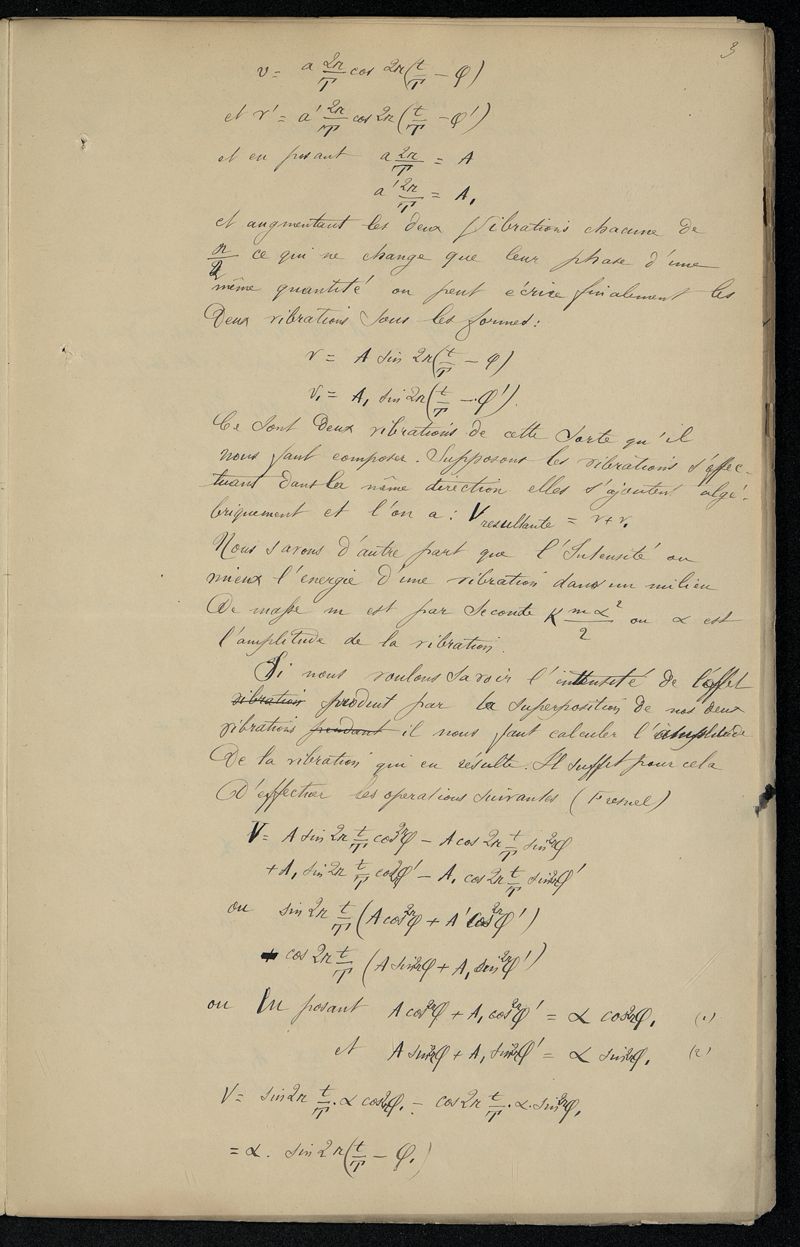 3
v = a 2π/T cos 2π(t/T − φ)
et v' = a' 2π/T cos 2π(t/T − φ')
et en posant a 2π/T = A
a' 2π/T = A₁
et augmentant les deux Vibrations chacune de
π/2 ce qui ne change que leur phase d'une
même quantité on peut écrire finalement les
Deux vibrations sous les formes :
v = A sin 2π(t/T − φ)
v₁ = A₁ sin 2π(t/T − φ').
Ce sont Deux vibrations de cette sorte qu'il
nous faut composer. Supposons les vibrations s'effec-
tuant dans la même direction elles s'ajoutent algé-
briquement et l'on a : V resultante = v + v₁
Nous savons d'autre part que l'Intensité ou
mieux l'energie d'une vibration dans un milieu
De masse m est par seconde K mα²/2 ou α est
l'amplitude de la vibration.
Si nous voulons savoir l'intensité de l'effet
vibration produit par la superposition de nos deux
vibrations pendant il nous faut calculer l'amplitude
De la vibration qui en résulte. Il suffit pour cela
D'effectuer les operations suivantes (Fresnel)
V = A sin 2π t/T cos 2πφ − A cos 2π t/T sin 2πφ
+ A₁ sin 2π t/T cos 2πφ' − A₁ cos 2π t/T sin 2πφ'
ou sin 2π t/T (A cos 2πφ + A' cos 2πφ')
− cos 2π t/T (A sin 2πφ + A₁ sin 2πφ')
ou En posant A cos 2πφ + A₁ cos 2πφ' = α cos 2πφ₁ (1)
et A sin 2πφ + A₁ sin 2πφ' = α sin 2πφ₁ (2)
V = sin 2π t/T . α cos 2πφ₁ − cos 2π t/T . α . sin 2πφ₁
= α . sin 2π(t/T − φ₁)